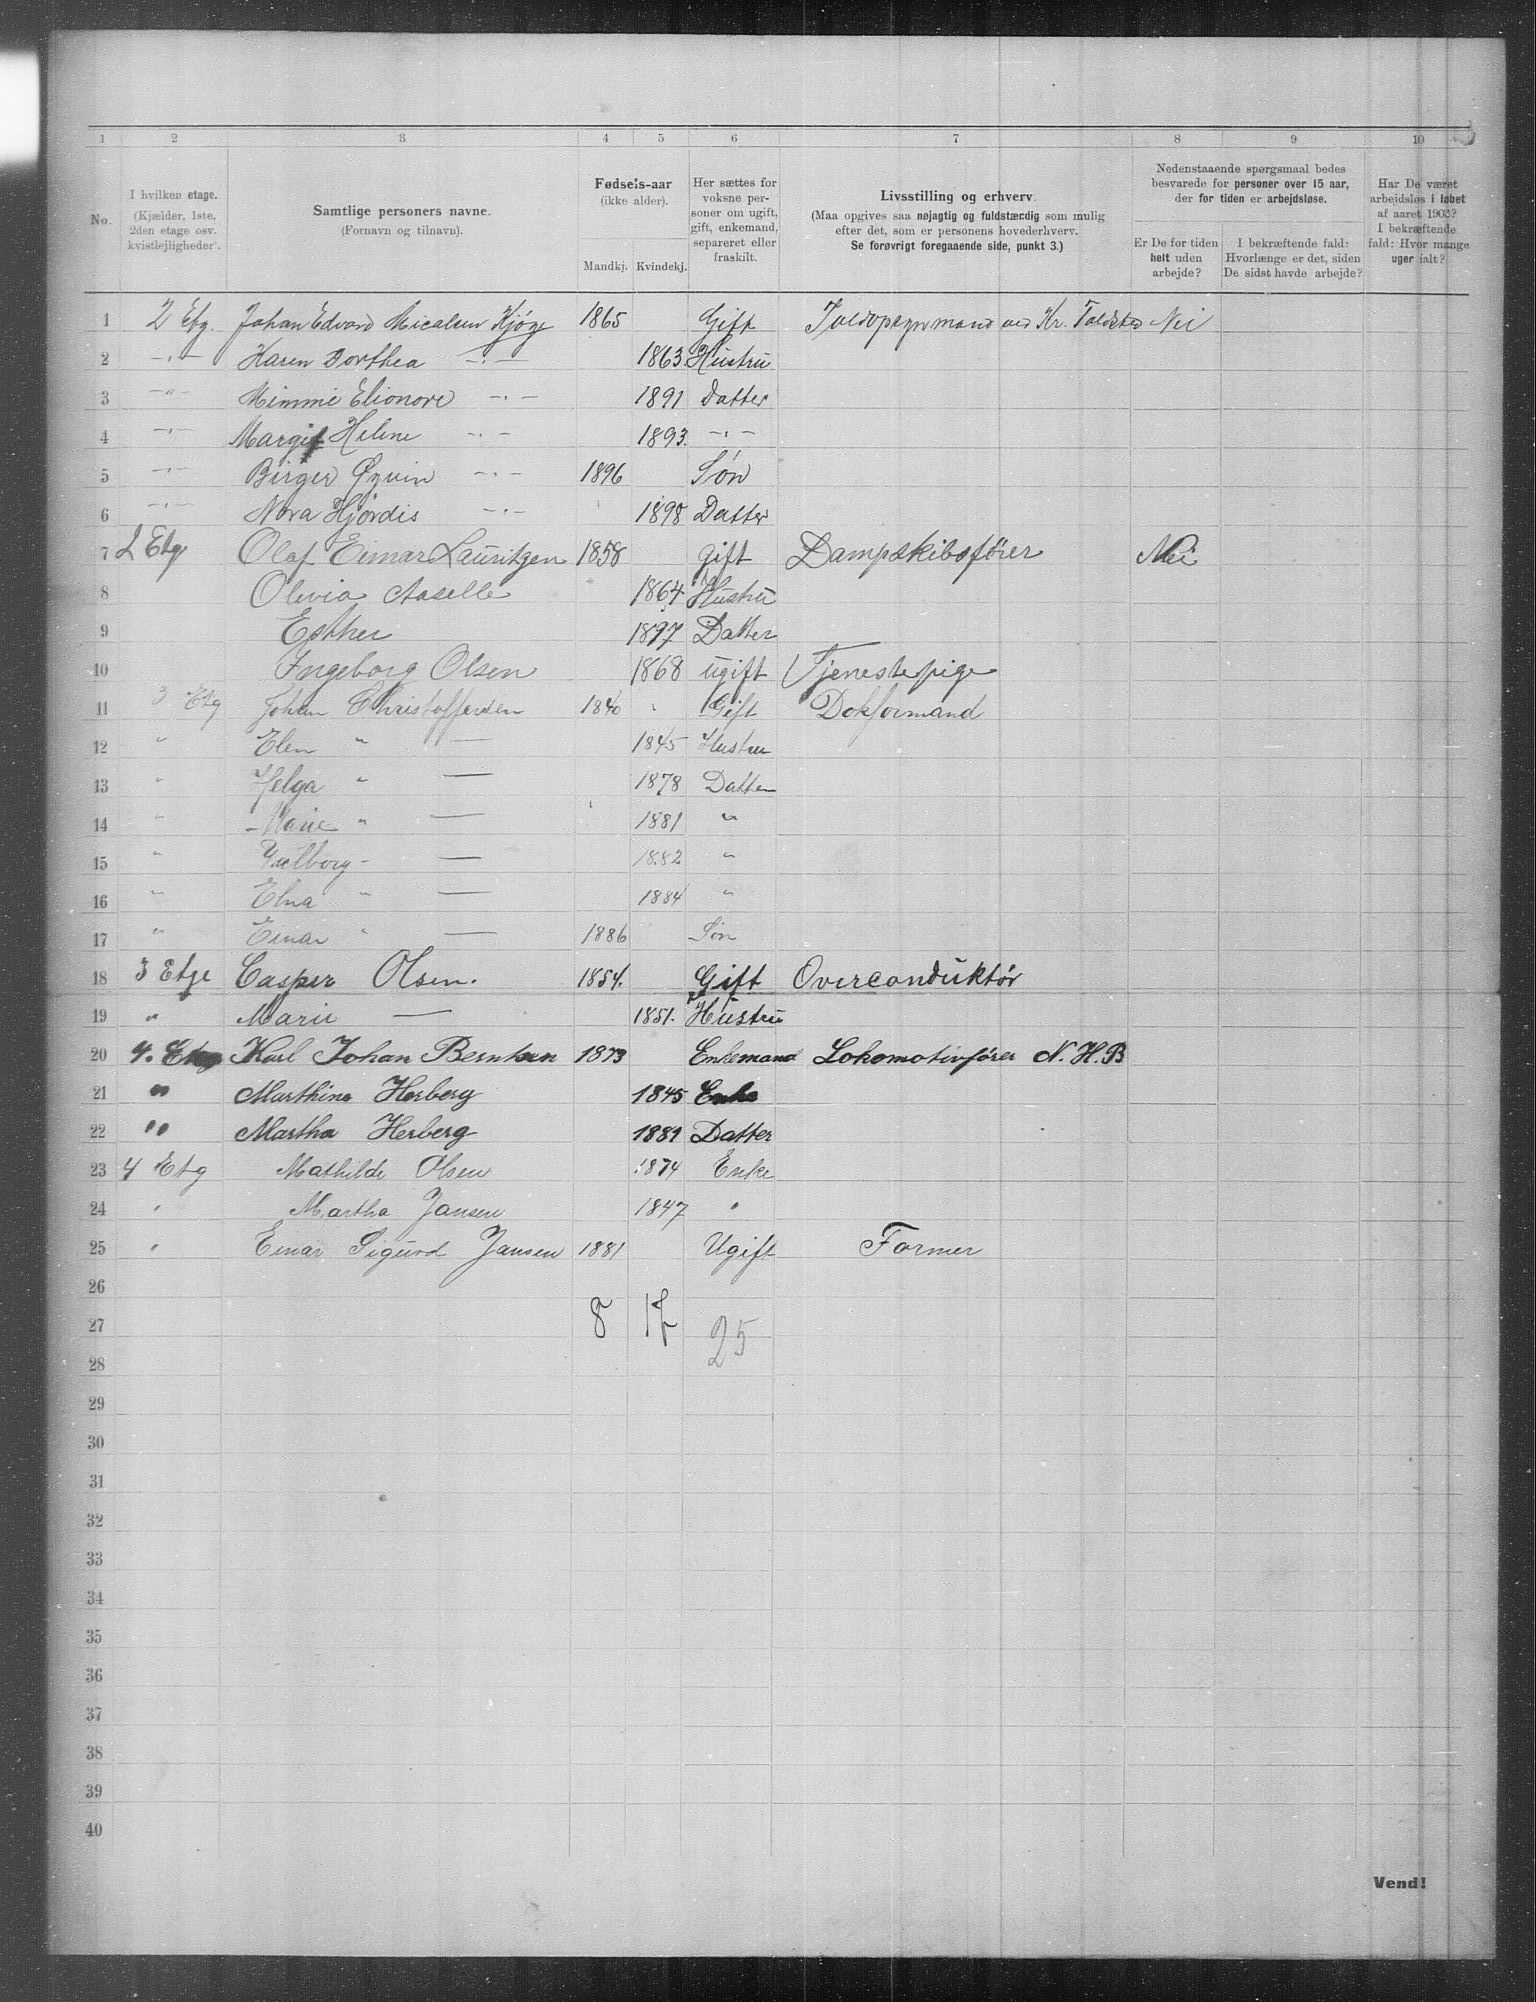 1 2 3 4 5 6 7 8 9 10
No.
I hvilken etage.
(Kjælder, 1ste,
2den etage osv.
kvistlejligheder).
Samtlige personers navne.
(Fornavn og tilnavn).
Fødsels-aar
(ikke alder).
Mandkj. Kvindekj.
Her sættes for
voksne per-
soner om ugift,
gift, enkemand,
separeret eller
fraskilt.
Livsstilling og erhverv.
(Maa opgives saa nøjagtig og fuldstændig som mulig
efter det, som er personens hovederhverv.
Se forøvrigt foregaaende side, punkt 3.)
Nedenstaaende spørgsmaal bedes
besvarede for personer over 15 aar,
der for tiden er arbejdsløse.
Er De for tiden
helt uden
arbejde?
I bekræftende fald:
Hvorlænge er det, siden
De sidst havde arbejde?
Har De været
arbejdsløs i løbet
af aaret 1903?
I bekræftende
fald: Hvor mange
uger ialt?
1 2 Etg. Johan Edvard Micalsen Kjøge 1865 Gift Toldopsynsmand ved Kr. Toldsted Nei
2 -"- Karen Dorthea -"- 1863 Hustru
3 -"- Mimmi Elionore -"- 1891 Datter
4 -"- Margit Helene -"- 1893. -"-
5 -"- Birger Øyvin -"- 1896 Søn
6 -"- Nora Hjørdis -"- 1898 Datter
7 2 Etg Olaf Eimar Lauritzen 1858 gift Dampskibsfører Nei
8 Olivia Aaselle 1864 Hustru
9 Esther 1897 Datter
10 Ingeborg Olsen 1868 ugift Tjenestepige
11 3 Etg Johan Christoffersen 1840 Gift Dokformand
12 " Elen " — 1845 Hustru
13 " Helga " — 1878 Datter
14 " Marie " — 1881 "
15 " Valborg - — 1882 "
16 " Elna " — 1884 "
17 " Einar " — 1886 Søn
18 3 Etge Casper Olsen. 1854. Gift Overconduktør
19 " Marie — 1851. Hustru
20 4. Etg Karl Johan Berntsen 1873 Enkemand Lokomotivfører N. H. B
21 " Marthine Herberg 1845 Enke
22 " Martha Herberg 1881 Datter
23 4 Etg Mathilde Olsen 1874 Enke
24 " Martha Jansen 1847 "
25 " Einar Sigurd Jansen 1881 Ugift Former
26
27 8 17 25
28
29
30
31
32
33
34
35
36
37
38
39
40
Vend!